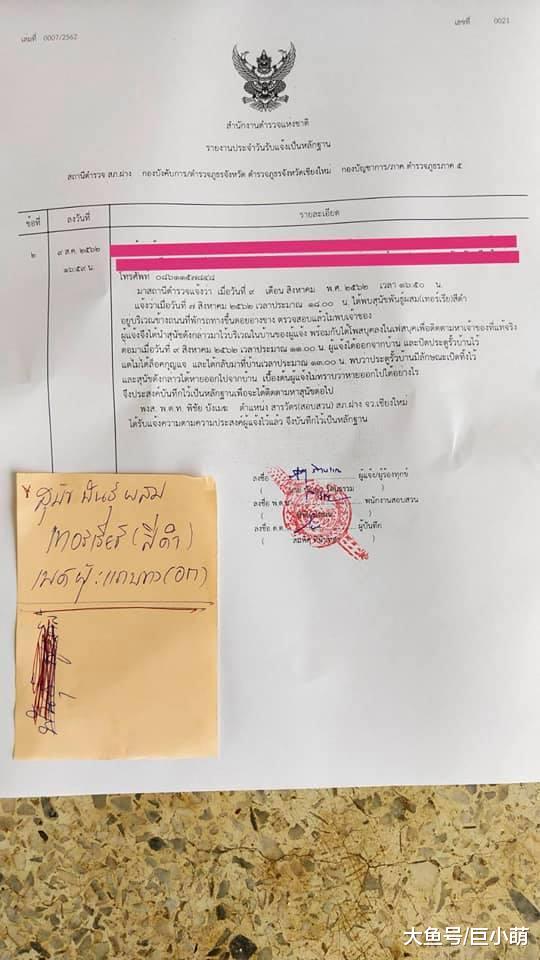 เล่มที่ 0007/2562
เลขที่ 0021
สำนักงานตำรวจแห่งชาติ
รายงานประจำวันรับแจ้งเป็นหลักฐาน
สถานีตำรวจ สภ.ฝาง กองบังคับการ/ตำรวจภูธรจังหวัด ตำรวจภูธรจังหวัดเชียงใหม่ กองบัญชาการ/ภาค ตำรวจภูธรภาค ๕
ข้อที่ ลงวันที่ รายละเอียด
๒ ๙ ส.ค. ๒๕๖๒
๑๖:๕๙ น.
โทรศัพท์ ๐๘๖๑๑๕๗๘๔๘
มาสถานีตำรวจแจ้งว่า เมื่อวันที่ ๙ เดือน สิงหาคม พ.ศ. ๒๕๖๒ เวลา ๑๖:๕๐ น.
แจ้งว่าเมื่อวันที่ ๗ สิงหาคม ๒๕๖๒ เวลาประมาณ ๑๘.๐๐ น. ได้พบสุนัขพันธุ์ผสม(เทอร์เรีย)สีดำ
อยู่บริเวณข้างถนนที่พักรถทางขึ้นดอยอ่างขาง ตรวจสอบแล้วไม่พบเจ้าของ
ผู้แจ้งจึงได้นำสุนัขดังกล่าวมาไว้บริเวณในบ้านของผู้แจ้ง พร้อมกับได้โพสบุคลงในเฟสบุคเพื่อติดตามหาเจ้าของที่แท้จริง
ต่อมาเมื่อวันที่ ๙ สิงหาคม ๒๕๖๒ เวลาประมาณ ๑๑.๐๐ น. ผู้แจ้งได้ออกจากบ้าน และปิดประตูรั้วบ้านไว้
แต่ไม่ได้ล็อคกุญแจ และได้กลับมาที่บ้านเวลาประมาณ ๑๓.๐๐ น. พบว่าประตูรั้วบ้านมีลักษณะเปิดทิ้งไว้
และสุนัขดังกล่าวได้หายออกไปจากบ้าน เบื้องต้นผู้แจ้งไม่ทราบว่าหายออกไปได้อย่างไร
จึงประสงค์บันทึกไว้เป็นหลักฐานเพื่อจะได้ติดตามหาสุนัขต่อไป
พงส. พ.ต.ท. พิชัย ปังเมฆ ตำแหน่ง สารวัตร(สอบสวน) สภ.ฝาง จว.เชียงใหม่
ได้รับแจ้งความตามความประสงค์ผู้แจ้งไว้แล้ว จึงบันทึกไว้เป็นหลักฐาน
ลงชื่อ ผู้แจ้ง/ผู้ร้องทุกข์
ลงชื่อ พ.ต.ท. พนักงานสอบสวน
ลงชื่อ ด.ต. ผู้บันทึก
สุนัข พันธุ์ ผสม
เทอร์เรีย (สีดำ)
เพศผู้ : แถบขาว (อก)
大鱼号/巨小萌